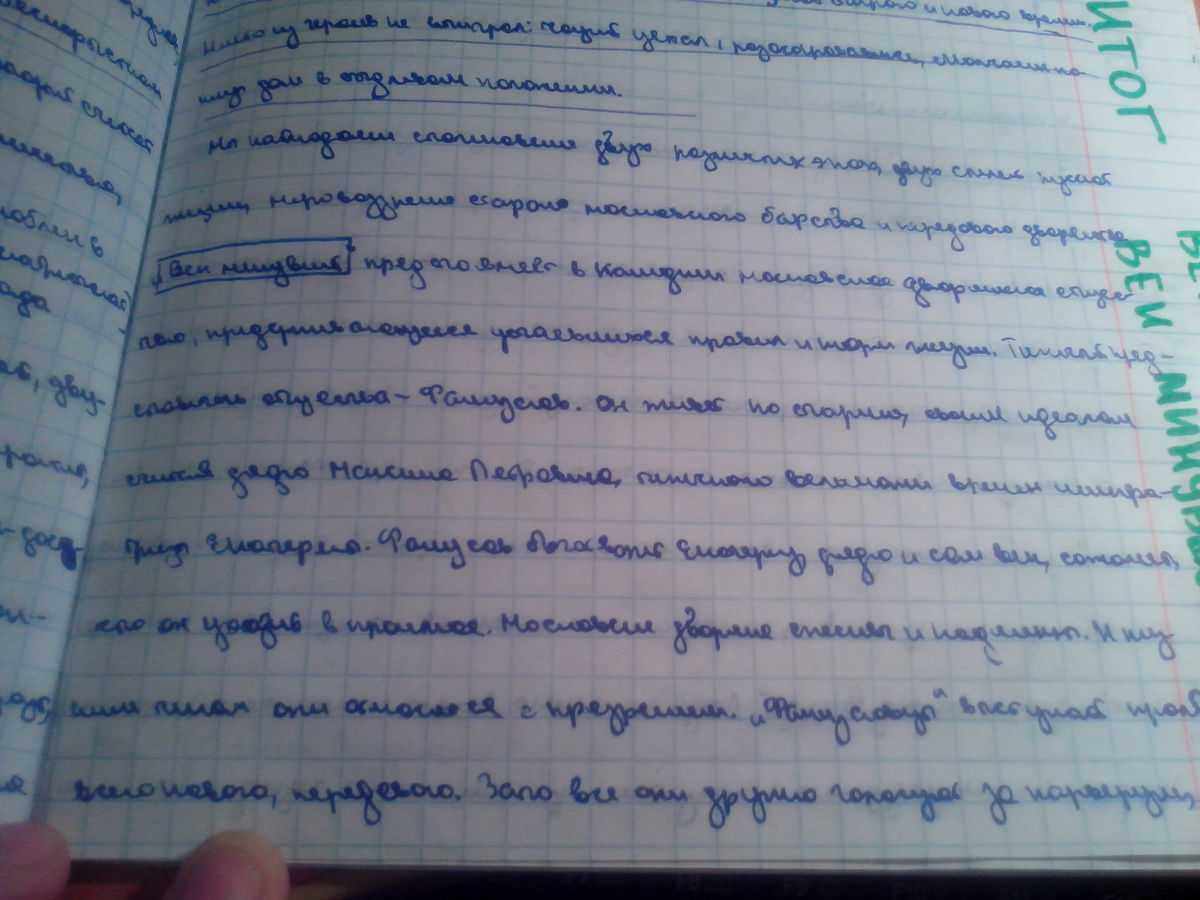 старого и нового времени.
Никто из героев не выиграл: Чацкий уехал, разочаровавшись, Молчалин по-
кинул дом в стыдливом положении.
Мы наблюдаем столкновение двух различных эпох, двух стилей русской
жизни, мировоззрение старого московского барства и передового дворянства
Век минувший представляет в комедии московское дворянское обще-
ство, придерживающееся устоявшихся правил и норм жизни. Типичный пред-
ставитель общества - Фамусов. Он живёт по старинке, своим идеалом
считая дядю Максима Петровича, типичного вельможи времён импера-
трицы Екатерины. Фамусов боготворит Екатерину, дядю и сам век, сожалея,
что он уходит в прошлое. Московские дворяне спесивы и надменны. К низ-
шим чинам они относятся с презрением. „Фамусовцы" выступают против
всего нового, передового. Зато все они дружно голосуют за карьеризм,
ИТОГ
ВЕК МИНУВШИЙ
ВЕ